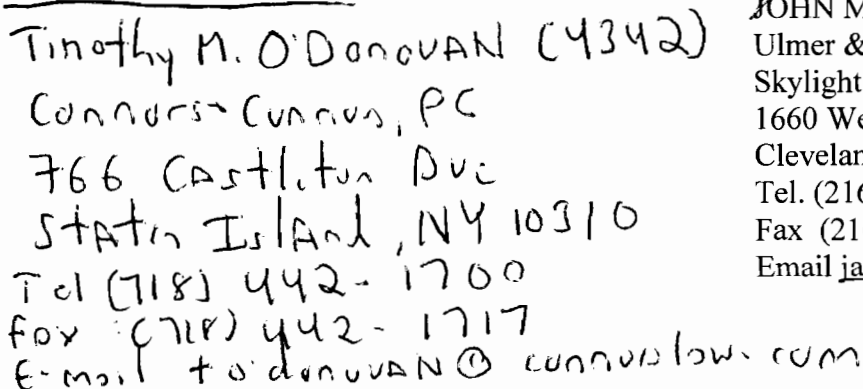 Timothy M. O'Donovan (4342)
Connors + Connors, PC
766 Castleton Ave
Staten Island, NY 10310
Tel (718) 442-1700
Fax (718) 442-1717
E-mail todonovan@connorslaw.com
JOHN M
Ulmer &
Skylight
1660 We
Clevelan
Tel. (216
Fax (21
Email ja